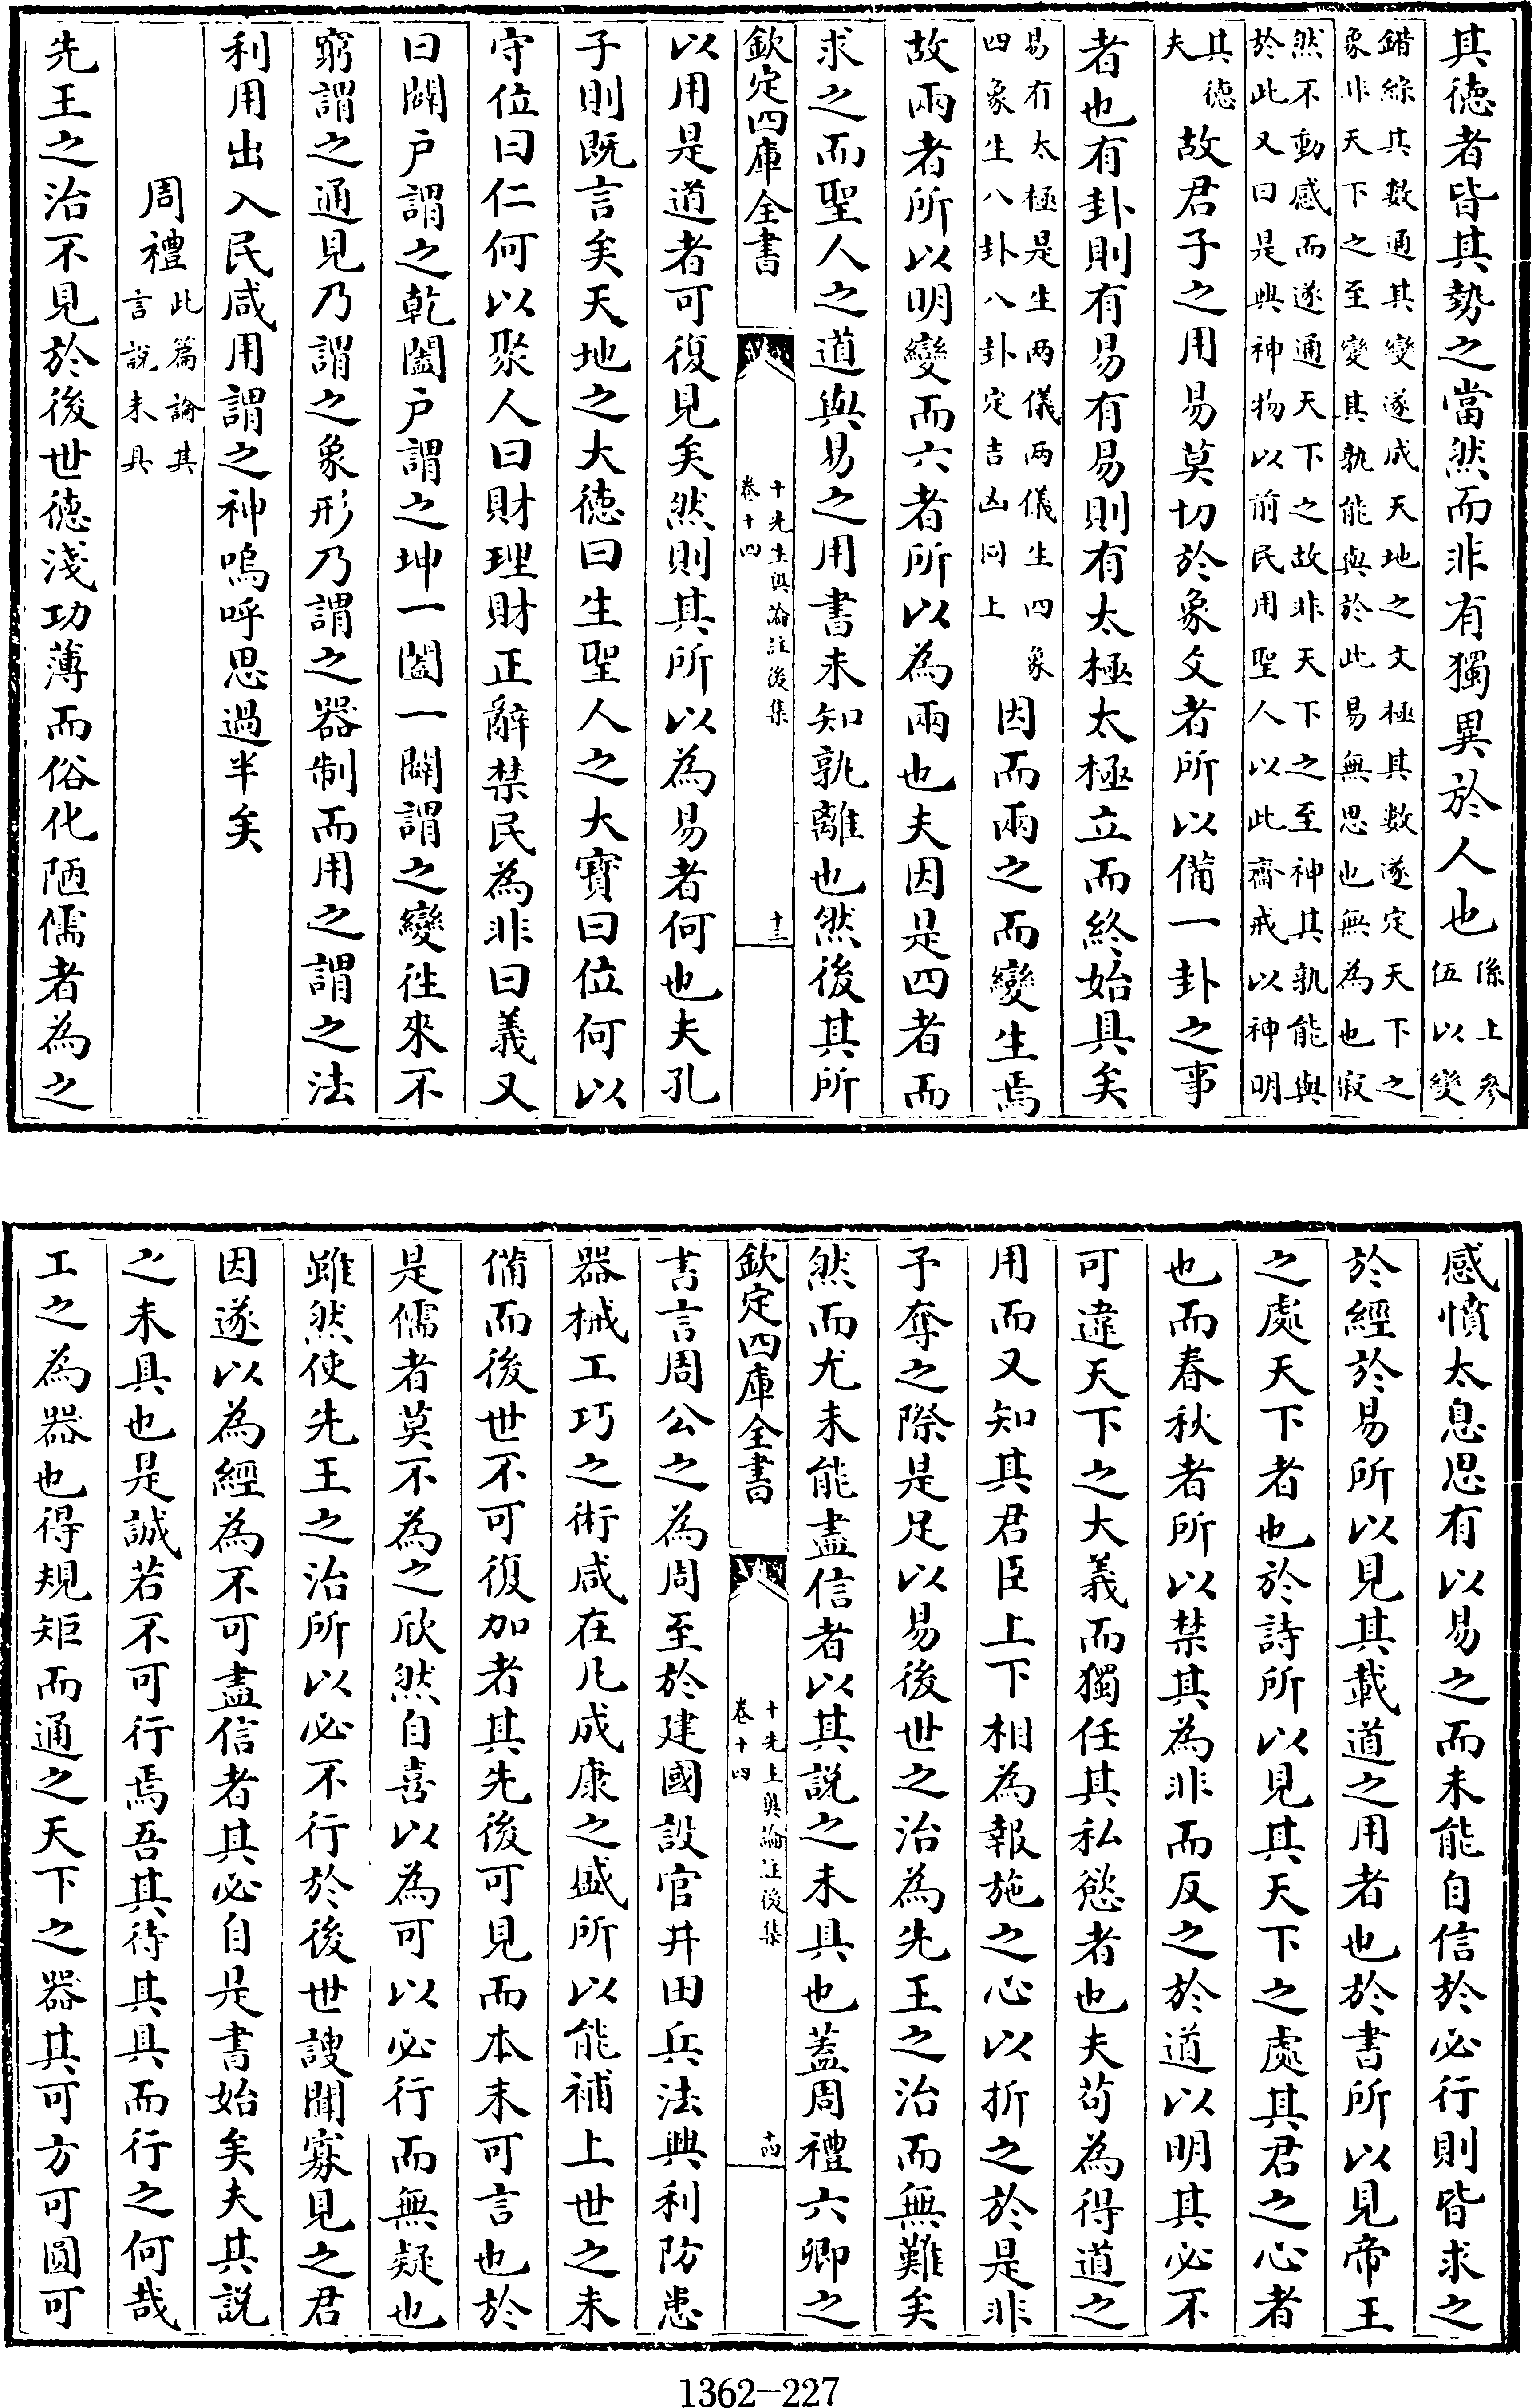 其德者皆其勢之當然而非有獨異於人也係上參伍以變
錯綜其數通其變遂成天地之文極其數遂定天下之
象非天下之至變其孰能與於此易無思也無為也寂
然不動感而遂通天下之故非天下之至神其孰能與
於此又曰是興神物以前民用聖人以此齋戒以神明
其德夫故君子之用易莫切於象爻者所以備一卦之事
者也有卦則有易有易則有太極太極立而終始具矣
易有太極是生兩儀兩儀生四象
四象生八卦八卦定吉凶同上因而兩之而變生焉
故兩者所以明變而六者所以為兩也夫因是四者而
求之而聖人之道與易之用書未知孰離也然後其所
欽定四庫全書
十先生奧論註後集
卷十四
十三
以用是道者可復見矣然則其所以為易者何也夫孔
子則既言矣天地之大德曰生聖人之大寶曰位何以
守位曰仁何以聚人曰財理財正辭禁民為非曰義又
曰闢戶謂之乾闔戶謂之坤一闔一闢謂之變往來不
窮謂之通見乃謂之象形乃謂之器制而用之謂之法
利用出入民咸用謂之神嗚呼思過半矣
周禮此篇論其言說未具
先王之治不見於後世德淺功薄而俗化陋儒者為之
感憤太息思有以易之而未能自信於必行則皆求之
於經於易所以見其載道之用者也於書所以見帝王
之處天下者也於詩所以見其天下之處其君之心者
也而春秋者所以禁其為非而反之於道以明其必不
可違天下之大義而獨任其私慾者也夫苟為得道之
用而又知其君臣上下相為報施之心以折之於是非
予奪之際是足以易後世之治為先王之治而無難矣
然而尤未能盡信者以其說之未具也蓋周禮六卿之
欽定四庫全書
十先生奧論註後集
卷十四
十四
書言周公之為周至於建國設官井田兵法興利防患
器械工巧之術咸在凡成康之盛所以能補上世之未
備而後世不可復加者其先後可見而本末可言也於
是儒者莫不為之欣然自喜以為可以必行而無疑也
雖然使先王之治所以必不行於後世謏聞寡見之君
因遂以為經為不可盡信者其必自是書始矣夫其說
之未具也是誠若不可行焉吾其待其具而行之何哉
工之為器也得規矩而通之天下之器其可方可圓可
1362-227